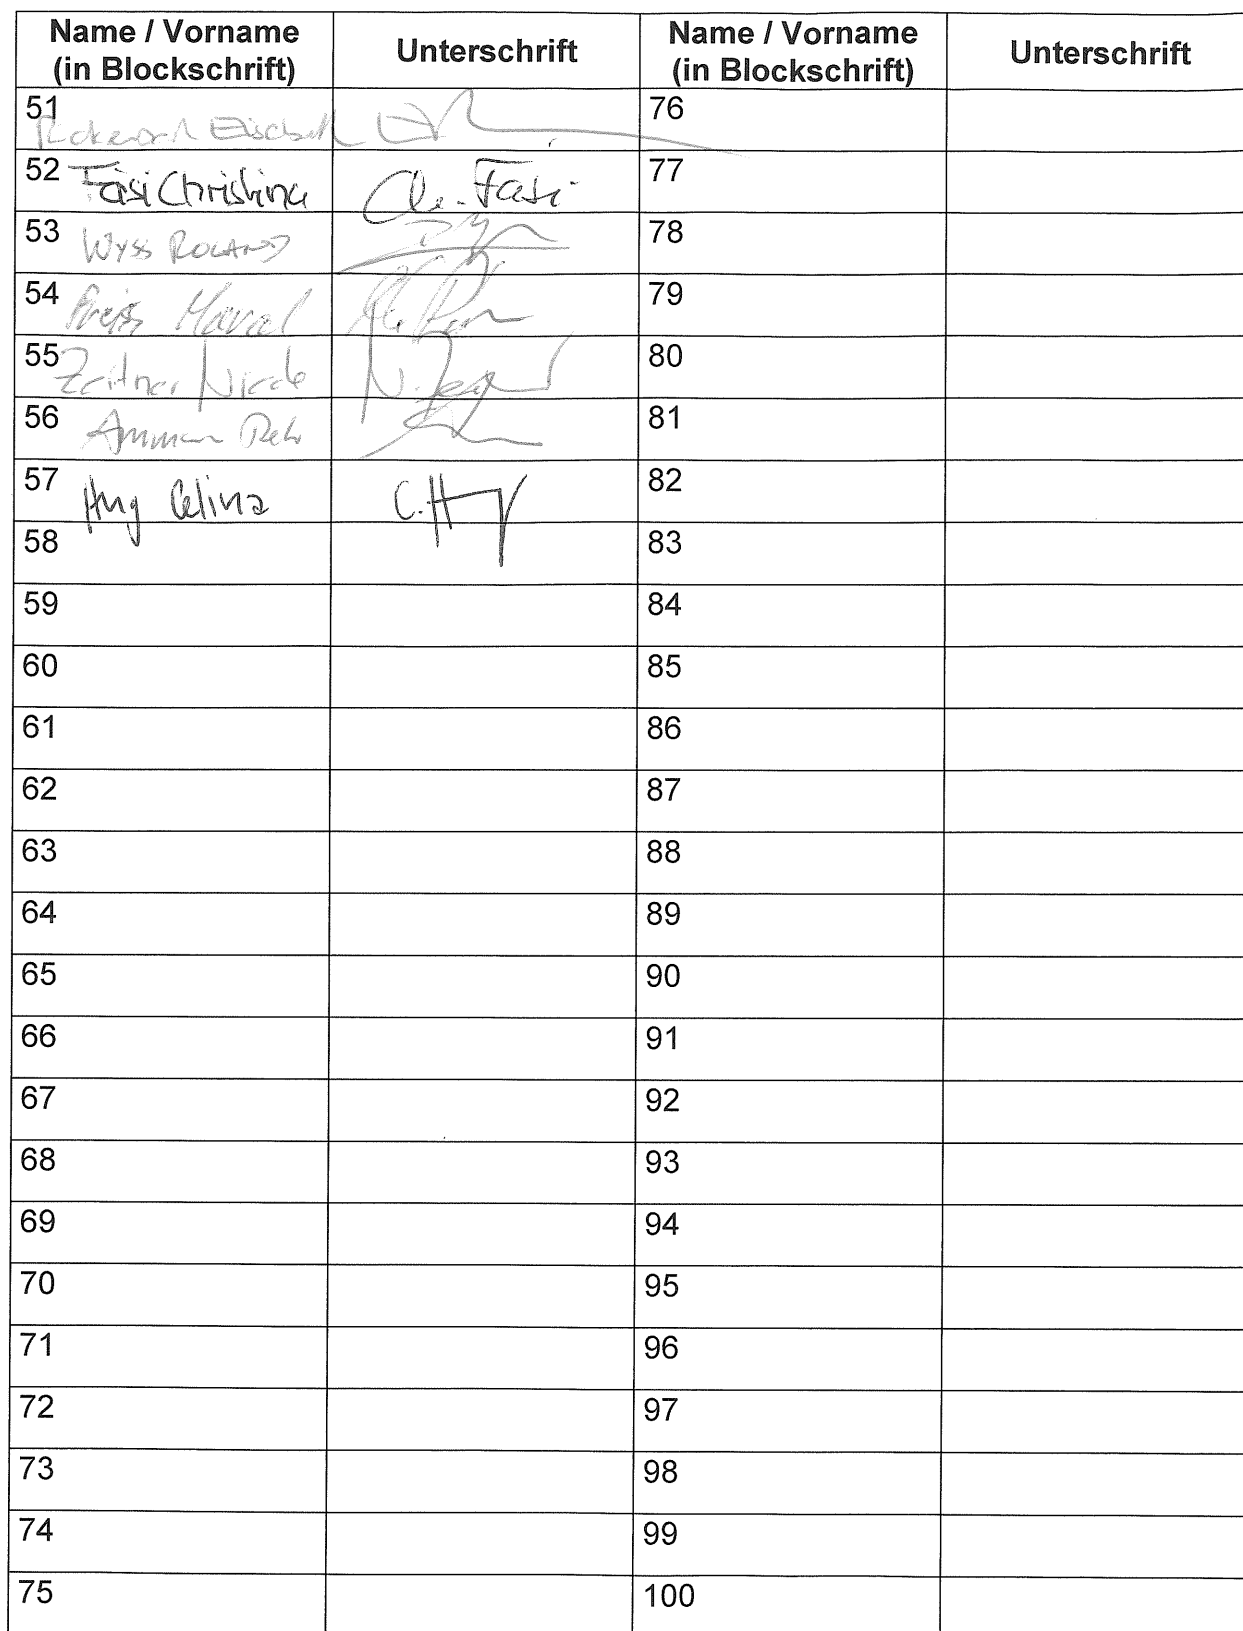 Name / Vorname (in Blockschrift) Unterschrift Name / Vorname (in Blockschrift) Unterschrift
51 76
52 Fäsi Christina Ch. Fäsi 77
53 Wyss ROLAND 78
54 Marcel 79
55 Zeitner Nicole 80
56 Ammann 81
57 Hug Celina C. Hug 82
58 83
59 84
60 85
61 86
62 87
63 88
64 89
65 90
66 91
67 92
68 93
69 94
70 95
71 96
72 97
73 98
74 99
75 100